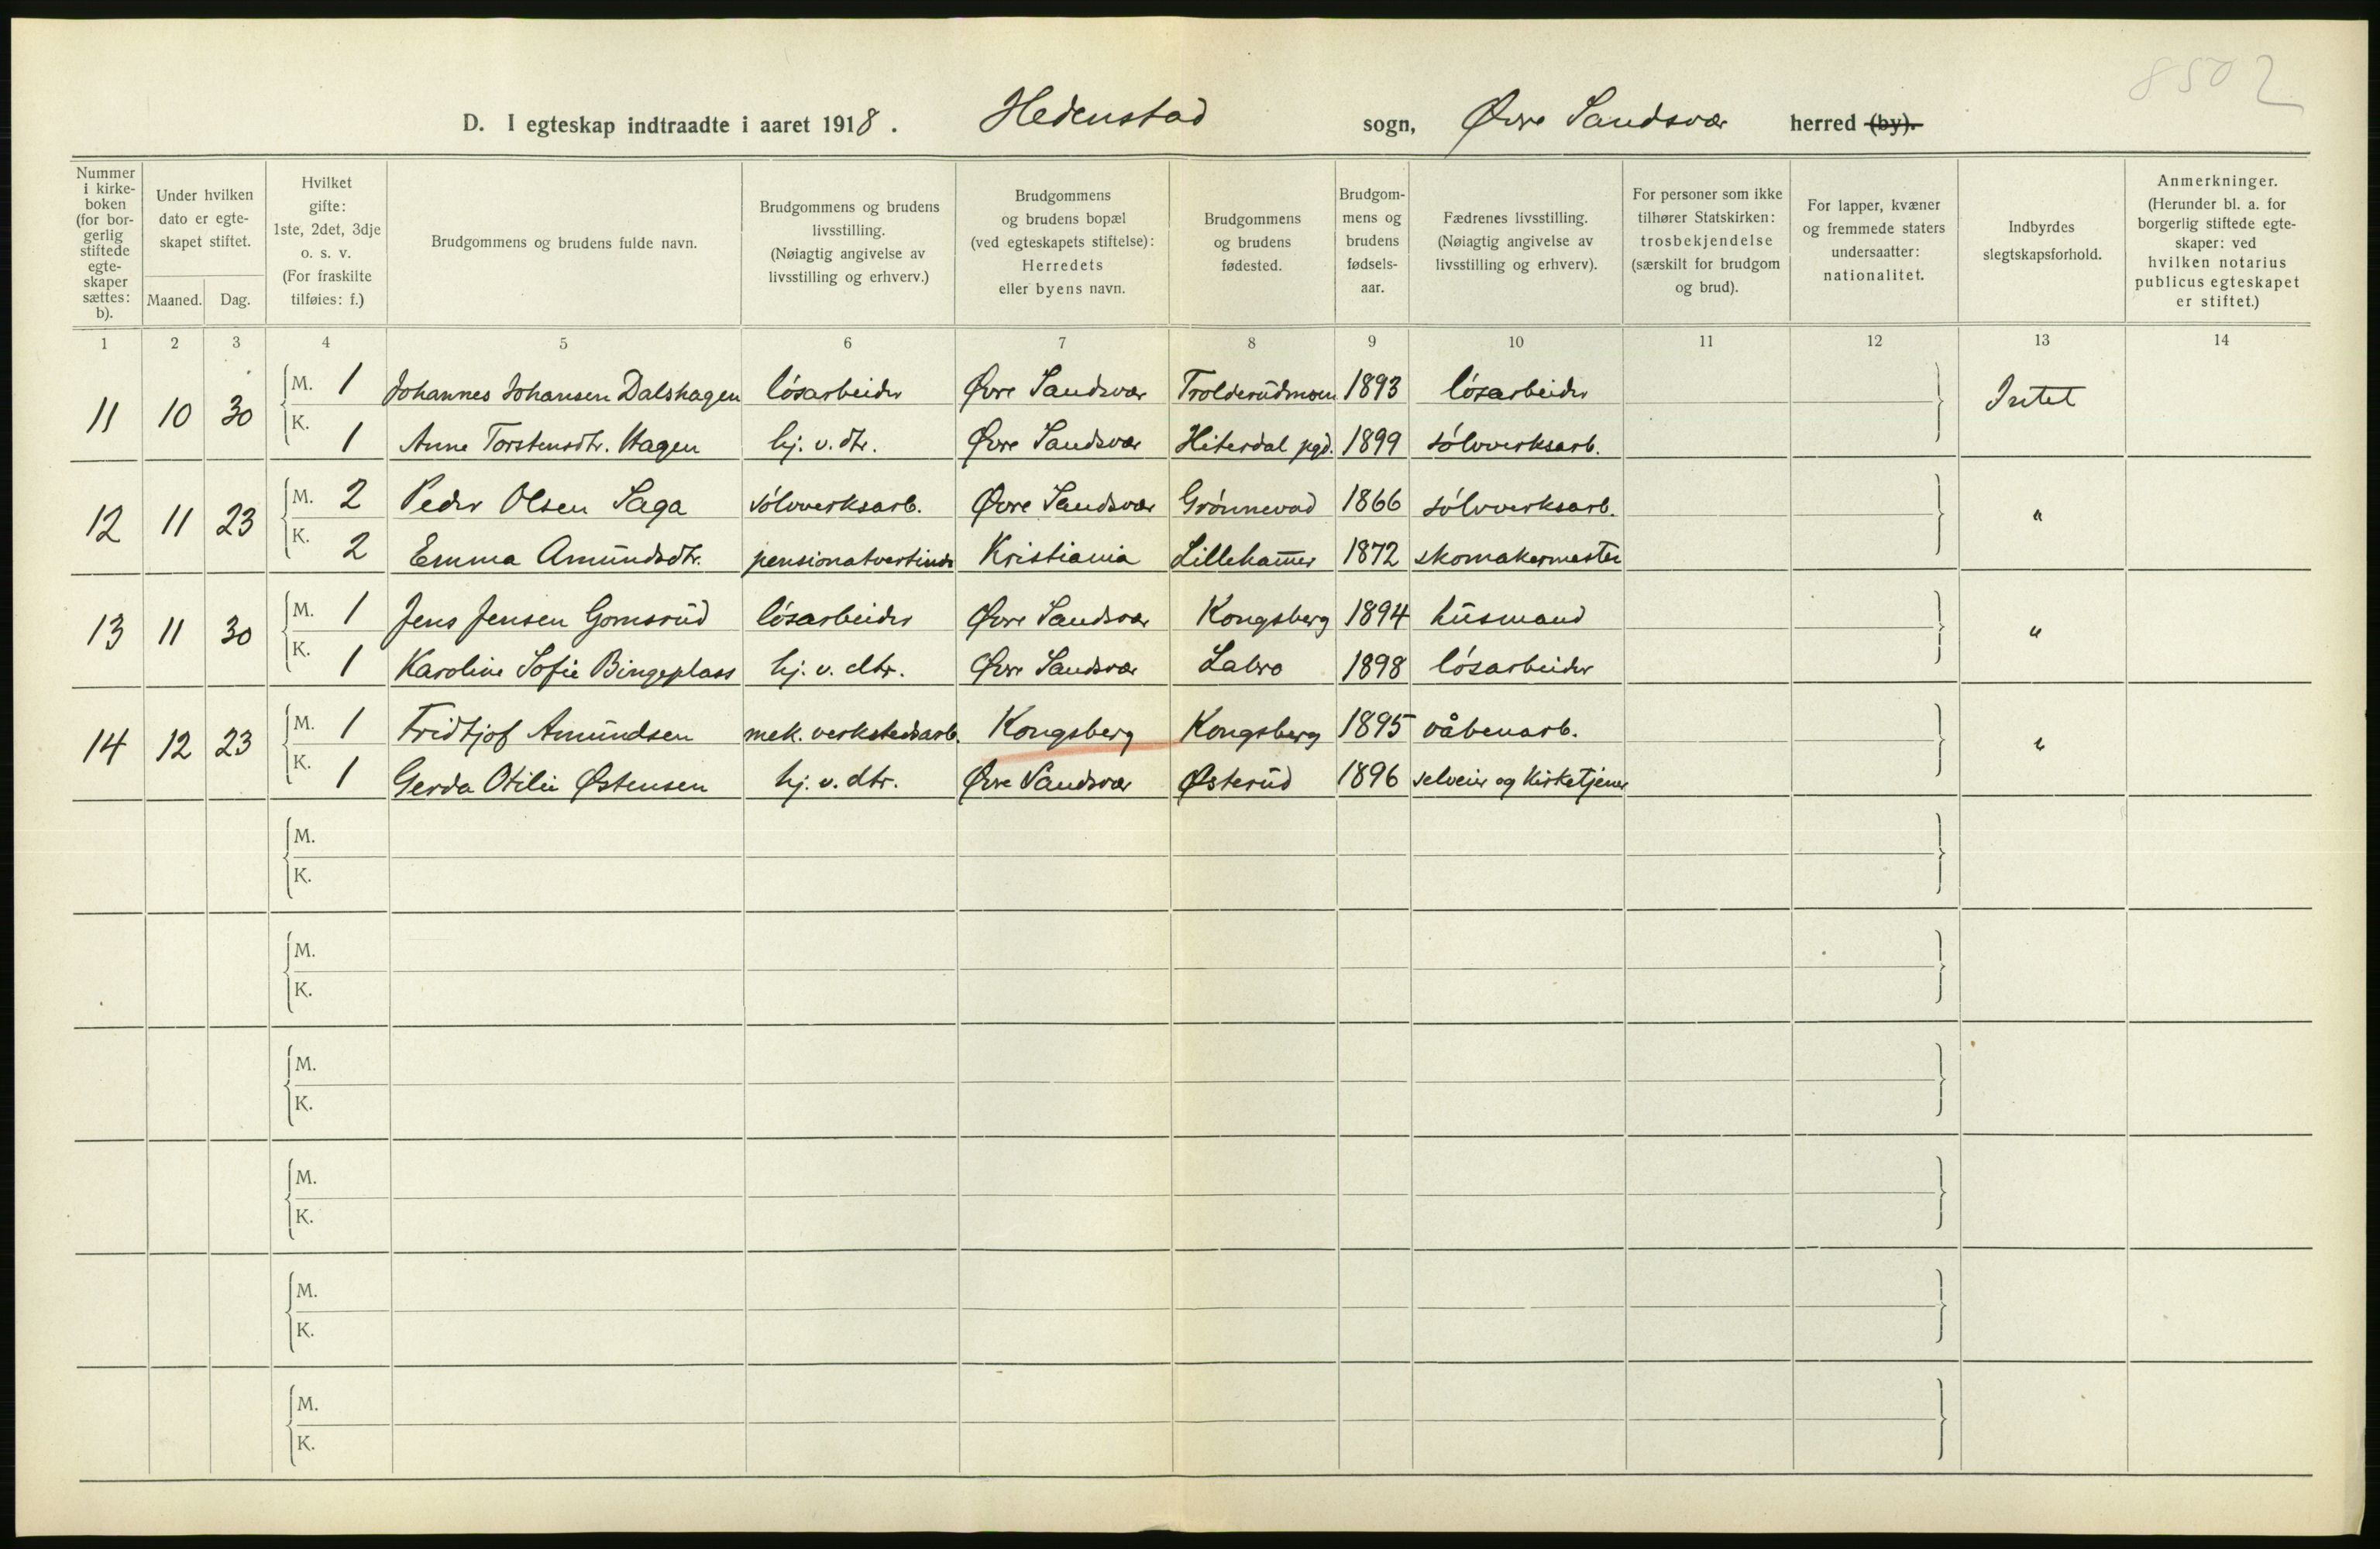 8502
D. I egteskap indtraadte i aaret 1918. Hedenstad sogn, Øvre Sandsvær herred (by).
Nummer i kirke-boken (for bor-gerlig stiftede egte-skaper sættes: b).
Under hvilken dato er egte-skapet stiftet.
Maaned. Dag.
Hvilket gifte: 1ste, 2det, 3dje o. s. v. (For fraskilte tilføies: f.)
Brudgommens og brudens fulde navn.
Brudgommens og brudens livsstilling. (Nøiagtig angivelse av livsstilling og erhverv.)
Brudgommens og brudens bopæl (ved egteskapets stiftelse): Herredets eller byens navn.
Brudgommens og brudens fødested.
Brudgom-mens og brudens fødsels-aar.
Fædrenes livsstilling. (Nøiagtig angivelse av livsstilling og erhverv).
For personer som ikke tilhører Statskirken: trosbekjendelse (særskilt for brudgom og brud).
For lapper, kvæner og fremmede staters undersaatter: nationalitet.
Indbyrdes slegtskapsforhold.
Anmerkninger. (Herunder bl. a. for borgerlig stiftede egte-skaper: ved hvilken notarius publicus egteskapet er stiftet.)
1 2 3 4 5 6 7 8 9 10 11 12 13 14
M. 1 Johannes Johansen Dalshagen løsarbeider Øvre Sandsvær Trolderudmoen 1893 løsarbeider
11 10 30 Intet
K. 1 Anne Torstensdtr. Hagen hj. v. dtr. Øvre Sandsvær Hiterdal pgd. 1899 sølvverksarb.
M. 2 Peder Olsen Saga sølvverksarb. Øvre Sandsvær Grønnevad 1866 sølvverksarb.
12 11 23 "
K. 2 Emma Amundsdtr. pensionatvertinde Kristiania Lillehammer 1872 skomakermester
M. 1 Jens Jensen Gomsrud løsarbeider Øvre Sandsvær Kongsberg 1894 husmand
13 11 30 "
K. 1 Karoline Sofie Bingeplass hj. v. dtr. Øvre Sandsvær Labro 1898 løsarbeider
M. 1 Fridtjof Amundsen mek. verkstedsarb. Kongsberg Kongsberg 1895 våbenarb.
14 12 23 "
K. 1 Gerda Otilie Østensen hj. v. dtr. Øvre Sandsvær Østerud 1896 selveier og kirketjener
M.
K.
M.
K.
M.
K.
M.
K.
M.
K.
M.
K.